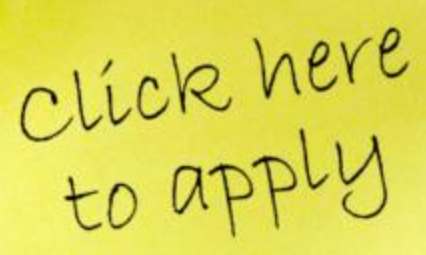 Click here
to apply